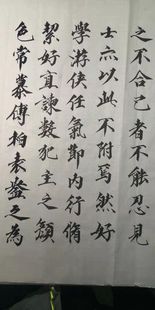 之不合己者不能忍見
士亦以此不附焉然好
學游俠任氣節內行脩
絜好直諫數犯主之顏
色常慕傅柏袁盎之為